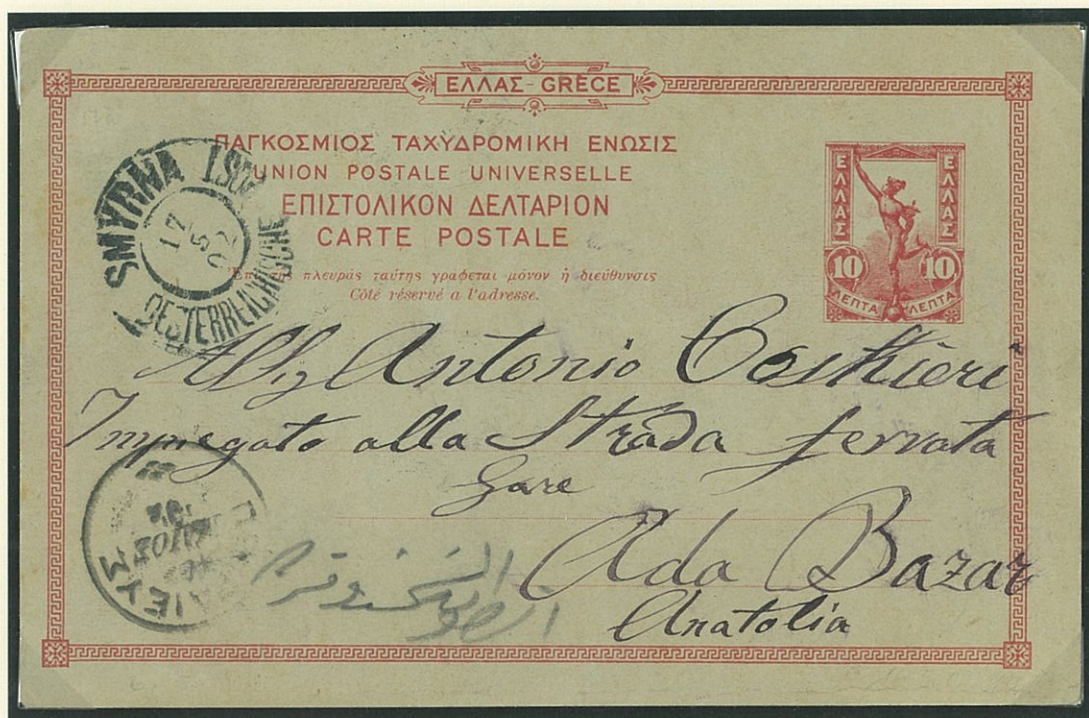 ΕΛΛΑΣ-GRÈCE
ΠΑΓΚΟΣΜΙΟΣ ΤΑΧΥΔΡΟΜΙΚΗ ΕΝΩΣΙΣ
UNION POSTALE UNIVERSELLE
ΕΠΙΣΤΟΛΙΚΟΝ ΔΕΛΤΑΡΙΟΝ
CARTE POSTALE
πλευρᾶς ταύτης γράφεται μόνον ἡ διεύθυνσις
Côté réservé a l'adresse.
ΕΛΛΑΣ ΕΛΛΑΣ
10 10
ΛΕΠΤΑ ΛΕΠΤΑ
SMYRNA
17
5
02
OESTERREICHISCHE
Antonio
Impiegato alla Strada ferrata
Gare
Ada Bazar
Anatolia